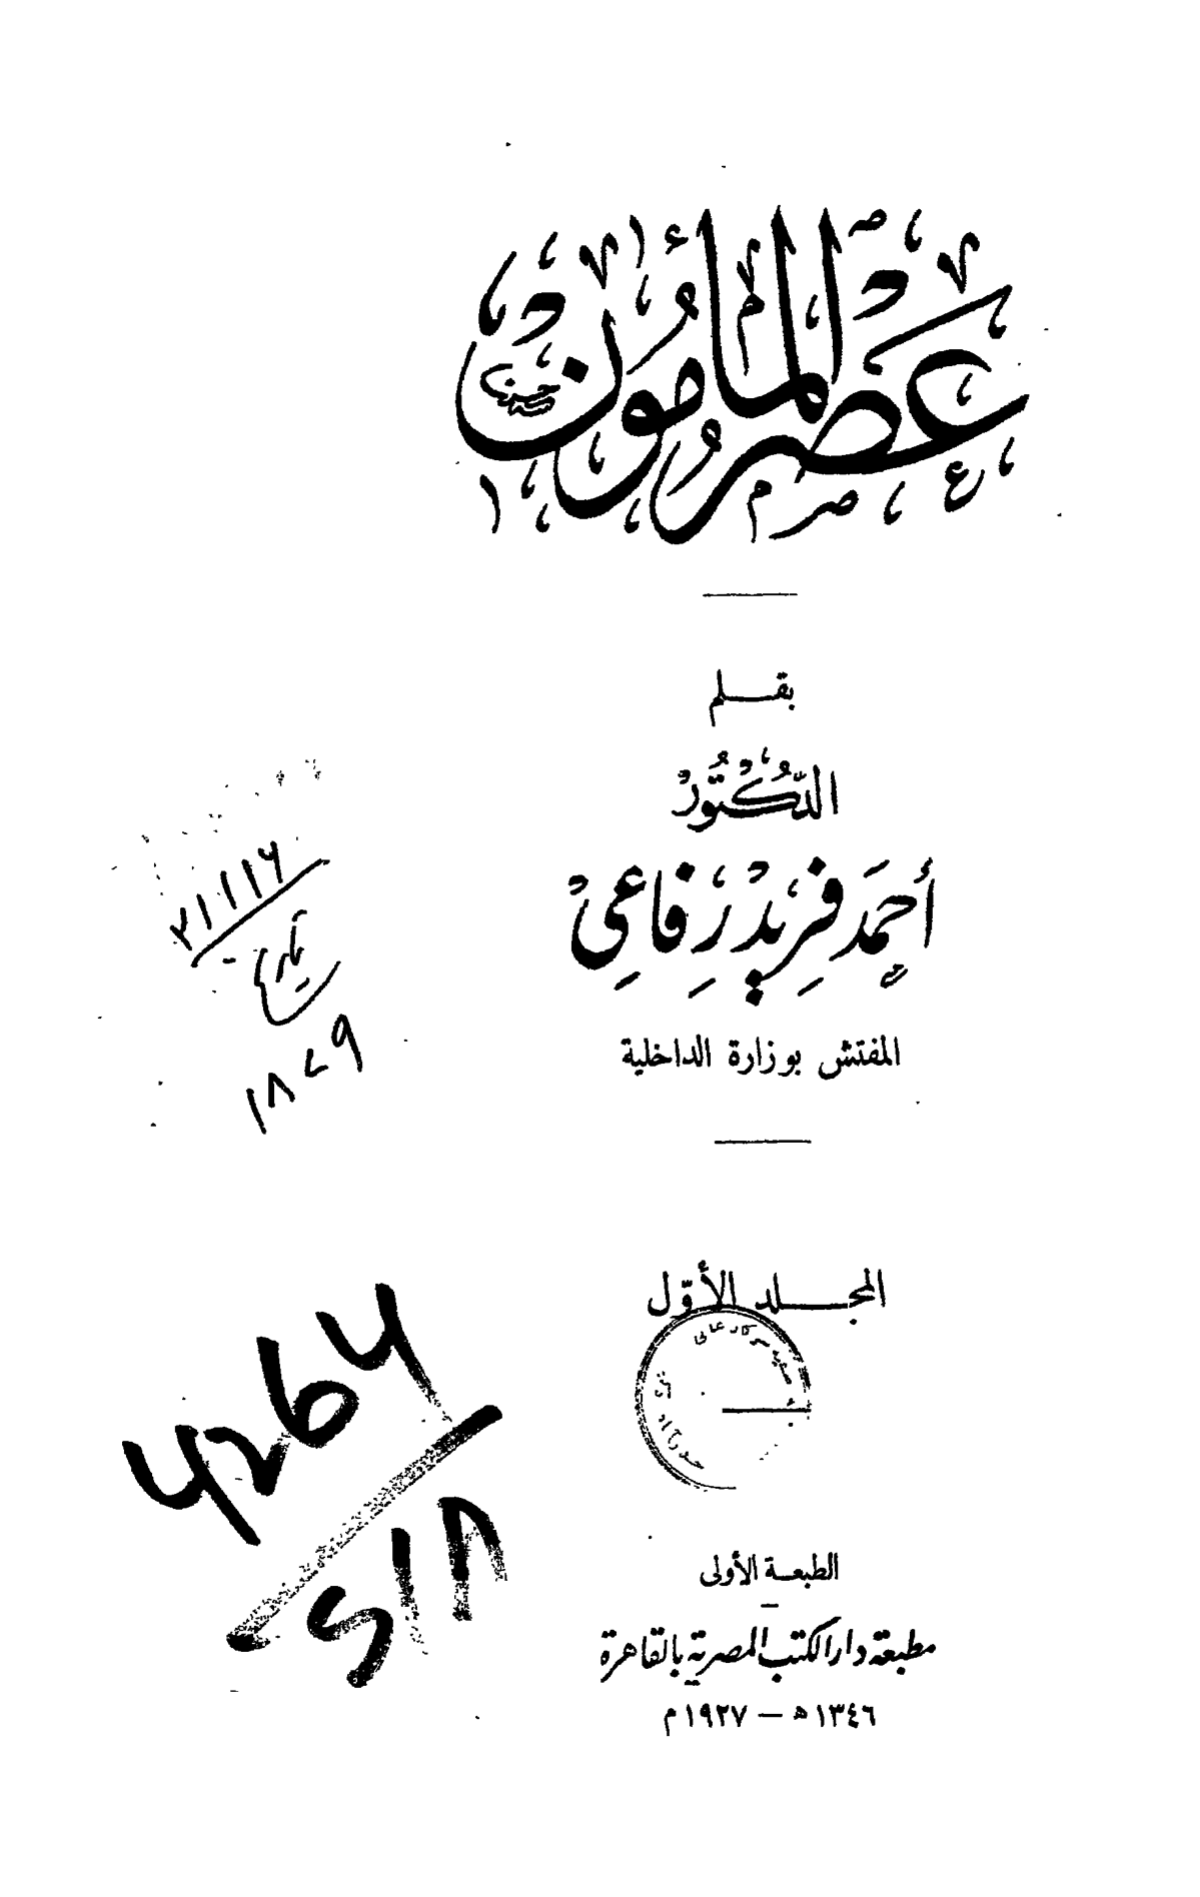 عصر المأمون
بقلم
الدكتور
أحمد فريد رفاعي
المفتش بوزارة الداخلية
المجلد الأول
الطبعة الأولى
مطبعة دار الكتب المصرية بالقاهرة
١٣٤٦ ه — ١٩٢٧ م